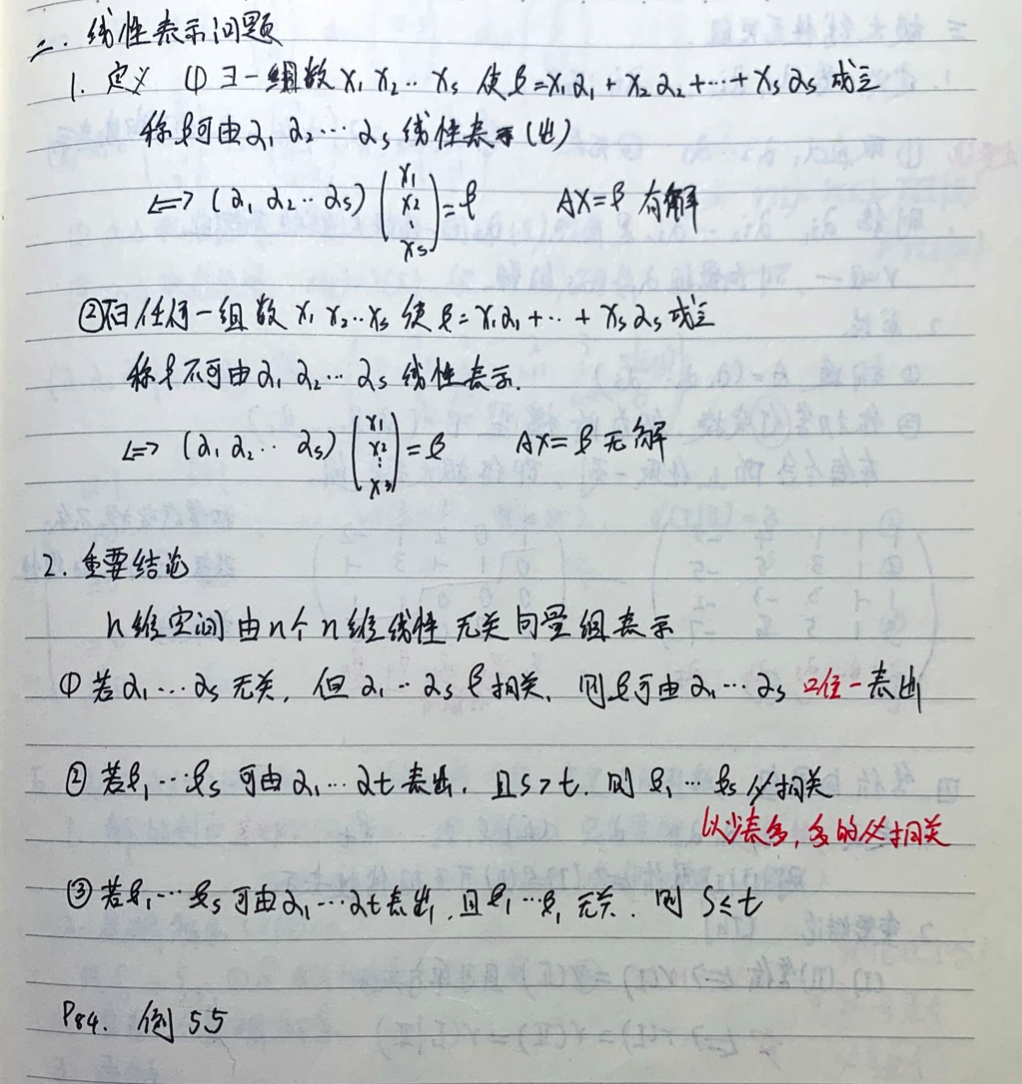 二. 线性表示问题
1. 定义 ① ∃一组数 x₁ x₂ ‥ xₛ 使β=x₁α₁+x₂α₂+⋯+xₛαₛ 成立
称β可由α₁ α₂⋯αₛ 线性表示(出)
⇐⇒ (α₁ α₂‥αₛ) (x₁ x₂ ⋮ xₛ) = β AX=β 有解
② 任何一组数 x₁ x₂‥xₛ 使β=x₁α₁+‥+xₛαₛ 成立
称β不可由α₁ α₂⋯αₛ 线性表示.
⇐⇒ (α₁ α₂‥αₛ) (x₁ x₂ ⋮ xₛ) = β AX=β 无解
2. 重要结论
n维空间由n个n维线性无关向量组表示
① 若α₁⋯αₛ 无关, 但α₁‥αₛ β相关, 则β可由α₁⋯αₛ 唯一表出
② 若β₁⋯βₛ 可由α₁⋯αt 表出, 且s>t, 则β₁⋯βₛ 必相关
以少表多, 多的必相关
③ 若β₁⋯βₛ 可由α₁⋯αt 表出, 且β₁⋯β₁ 无关, 则 s≤t
P84. 例 5.5